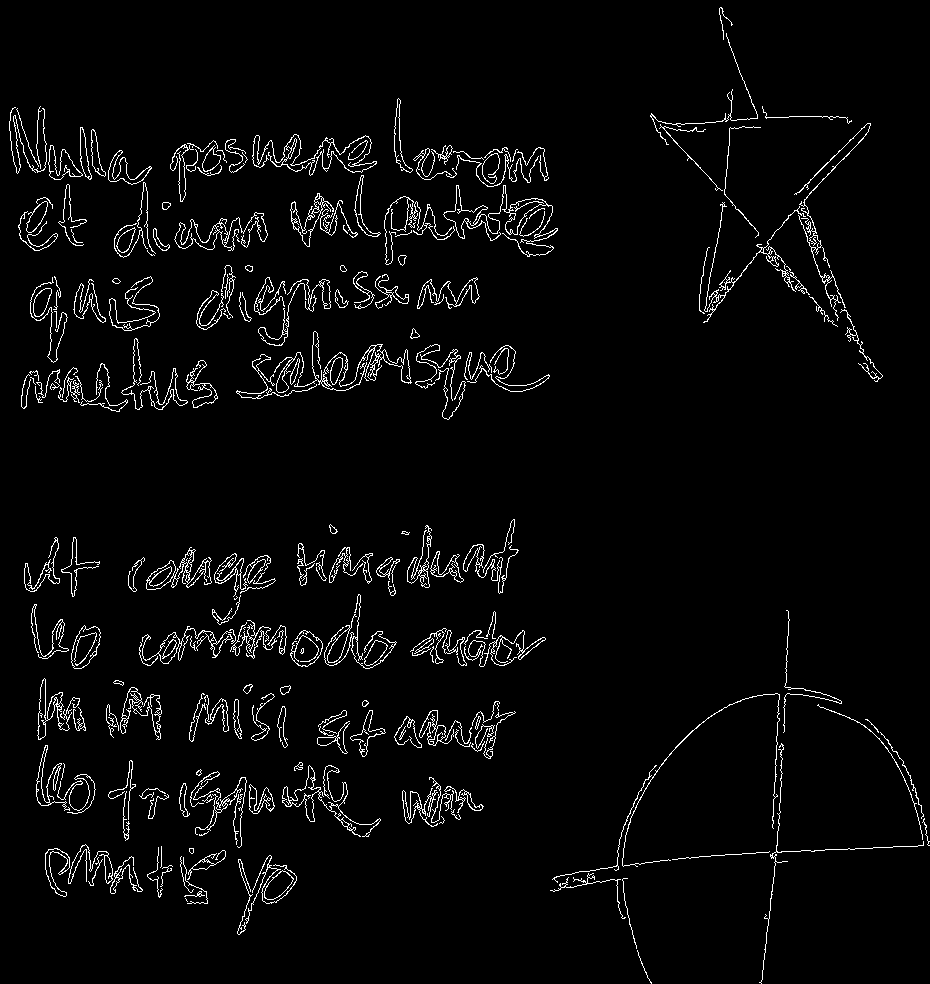 Nulla posuere lorem
et diam vulputate
quis dignissim
metus scelerisque
Ut congue tincidunt
leo commodo auctor
In in nisi sit amet
leo tristique non